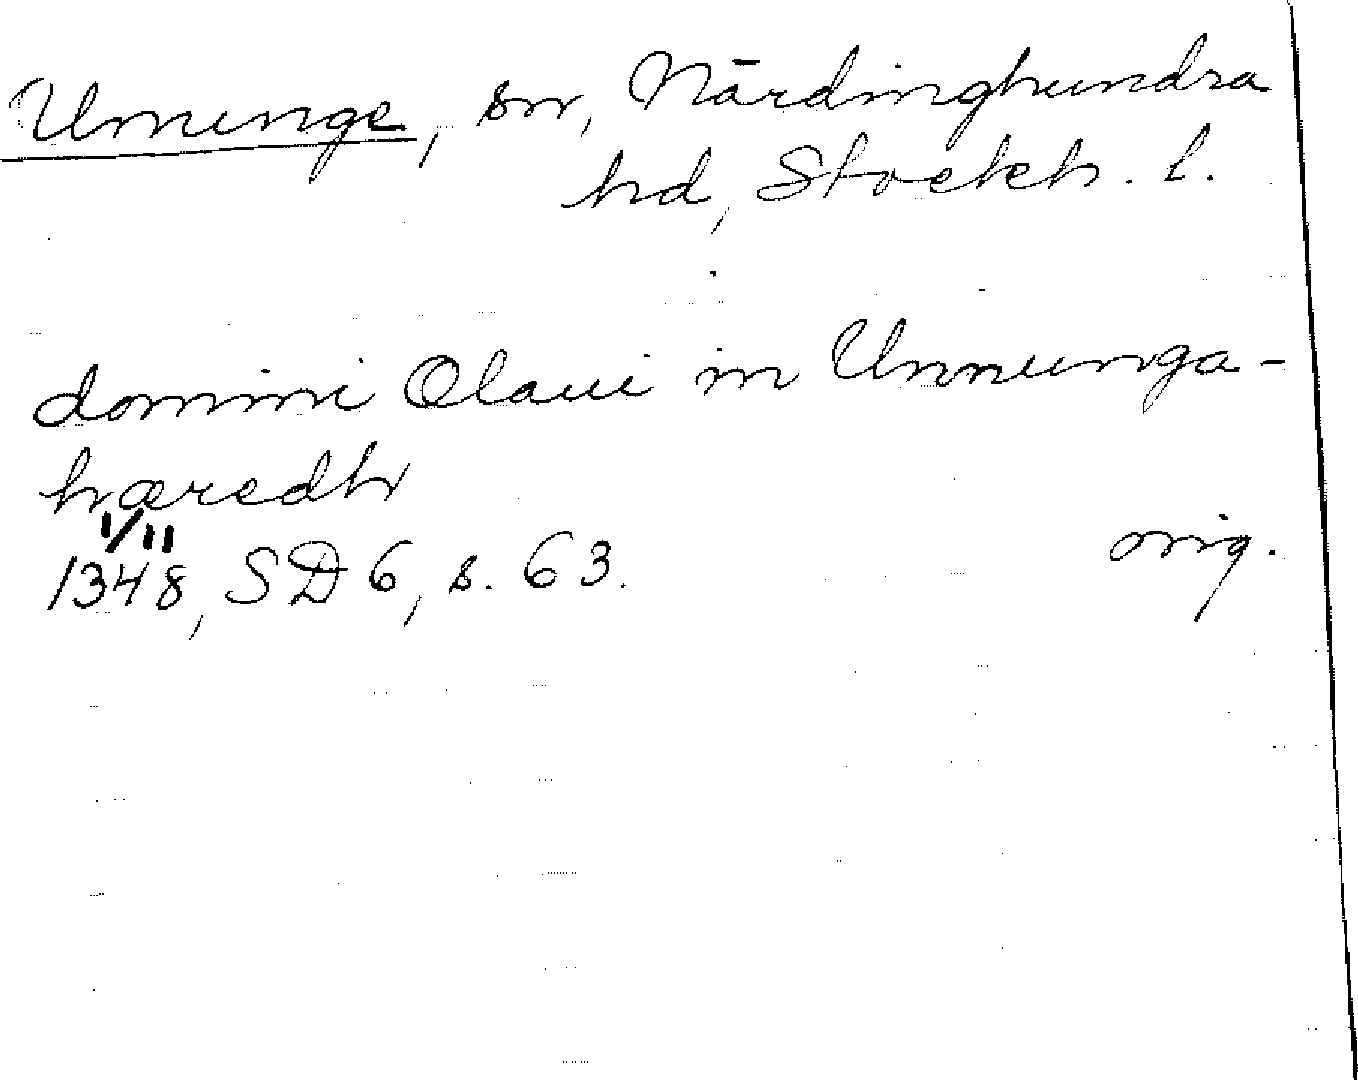 Ununge, sn, Närdinghundra
hd, Stockh. l.
domini Olaui in Vnnunga-
hæredh
1/11
1348, SD 6, s. 63.
orig.